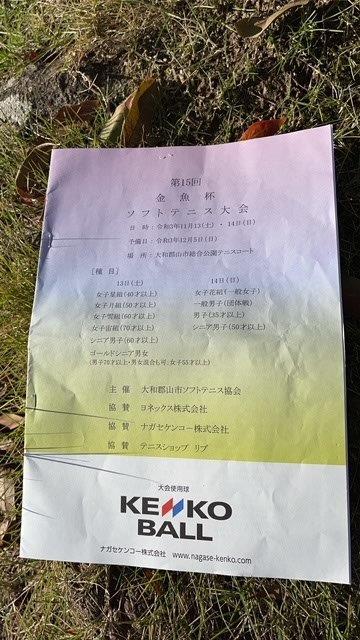 第15回
金魚杯
ソフトテニス大会
日 時：令和3年11月13(土)・14日(日)
予備日：令和3年12月5日(日)
場 所：大和郡山市総合公園テニスコート
［種 目］
13日(土) 14日(日)
女子星組(40才以上) 女子花組(一般女子)
女子月組(50才以上) 一般男子(団体戦)
女子雪組(60才以上) 男子(35才以上)
女子宙組(70才以上) シニア男子(50才以上)
シニア男子(60才以上)
ゴールドシニア男女
(男子70才以上・男女混合も可:女子55才以上)
主 催 大和郡山市ソフトテニス協会
協 賛 ヨネックス株式会社
協 賛 ナガセケンコー株式会社
協 賛 テニスショップ リブ
大会使用球
KENKO
BALL
ナガセケンコー株式会社 www.nagase-kenko.com